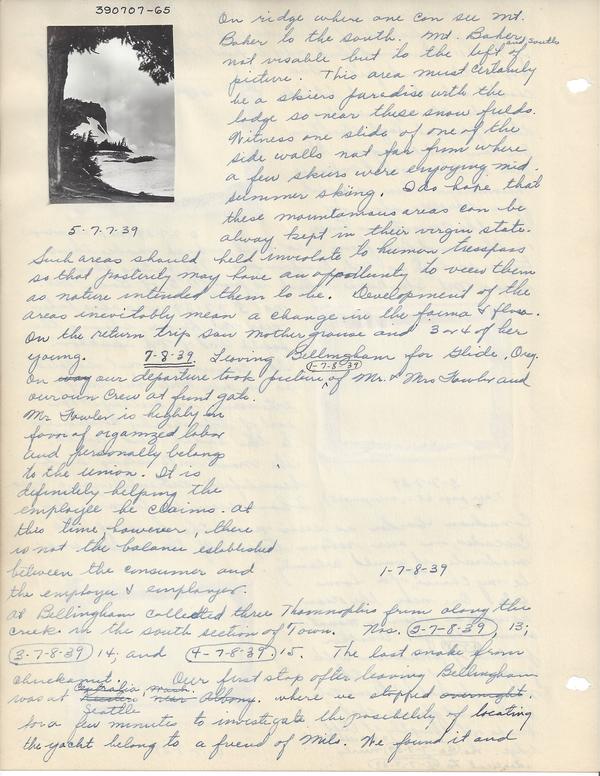 390707-65
On ridge where one can see Mt.
Baker to the south. Mt. Baker
not visable but to the left and south
picture. This area must certainly
be a skiers paradise with the
lodge so near these snow fields.
Witness one slide of one of the
side walls not far from where
a few skiers were enjoying mid
summer skiing. I do hope that
these mountainous areas can be
alway kept in their virgin state.
5-7-7-39
Such areas should held inviolate to human tresspass
so that posterity may have an opportunity to view them
as nature intended them to be. Development of the
areas inevitably mean a change in the fauna & flora.
On the return trip saw mother grouse and 3 or 4 of her
young. 7-8-39. Leaving Bellingham for Glide, Oreg.
On way our departure took picture of 1-7-8-39 Mr. & Mrs Fowler and
our own crew at front gate.
Mr. Fowler is highly in
favor of organized labor
and personally belongs
to the union. It is
definitely helping the
employee he claims. At
this time, however, there
is not the balance established
between the consumer and
the employer & employer.
1-7-8-39
At Bellingham collected three Thamnophis from along the
creek in the south section of Town. Nos. 2-7-8-39, 13;
3-7-8-39 14; and 4-7-8-39. 15. The last snake from
chuckanut. Our first stop after leaving Bellingham
was at Centralia, Wash. near Albany. where we stopped overnight.
Seattle
for a few minutes to investigate the possibility of locating
the yacht belong to a friend of Milo. We found it and